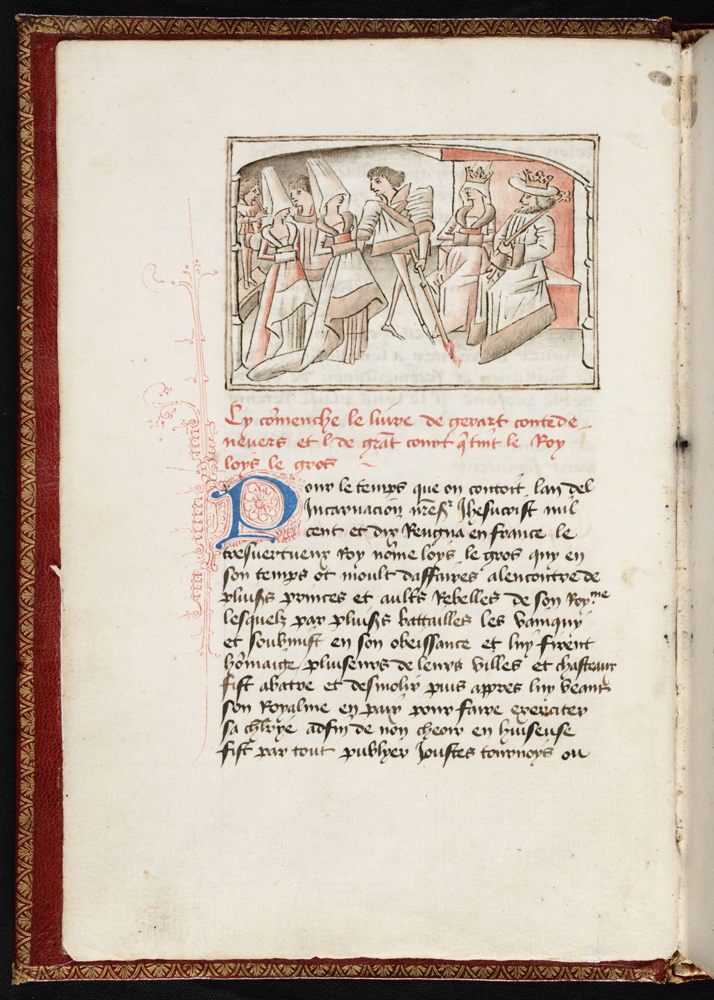 Cy comenche le livre de gerart conte de
nevers et l de grat court q tint le Roy
loys le gros
Pour le temps que on contoit lan del
Incarnacion nres Jhesucrist mil
cent et dix Rengna en france le
tresvertueux Roy nome loys le gros quy en
son temps ot moult daffaires alencontre de
pluiss princes et aultrs Rebelles de son Roy.me
lesquelz par pluiss battailles les vainquy
et soubmist en son obeissance et luy firent
homaige pluiseurs de leurs villes et chasteaux
fist abatre et desmolir puis appres luy veant
son Royalme en paix pour faire exerciter
sa chlrye adfin de non cheoir en huiseuse
fist par tout publyer Joustes tournoys ou